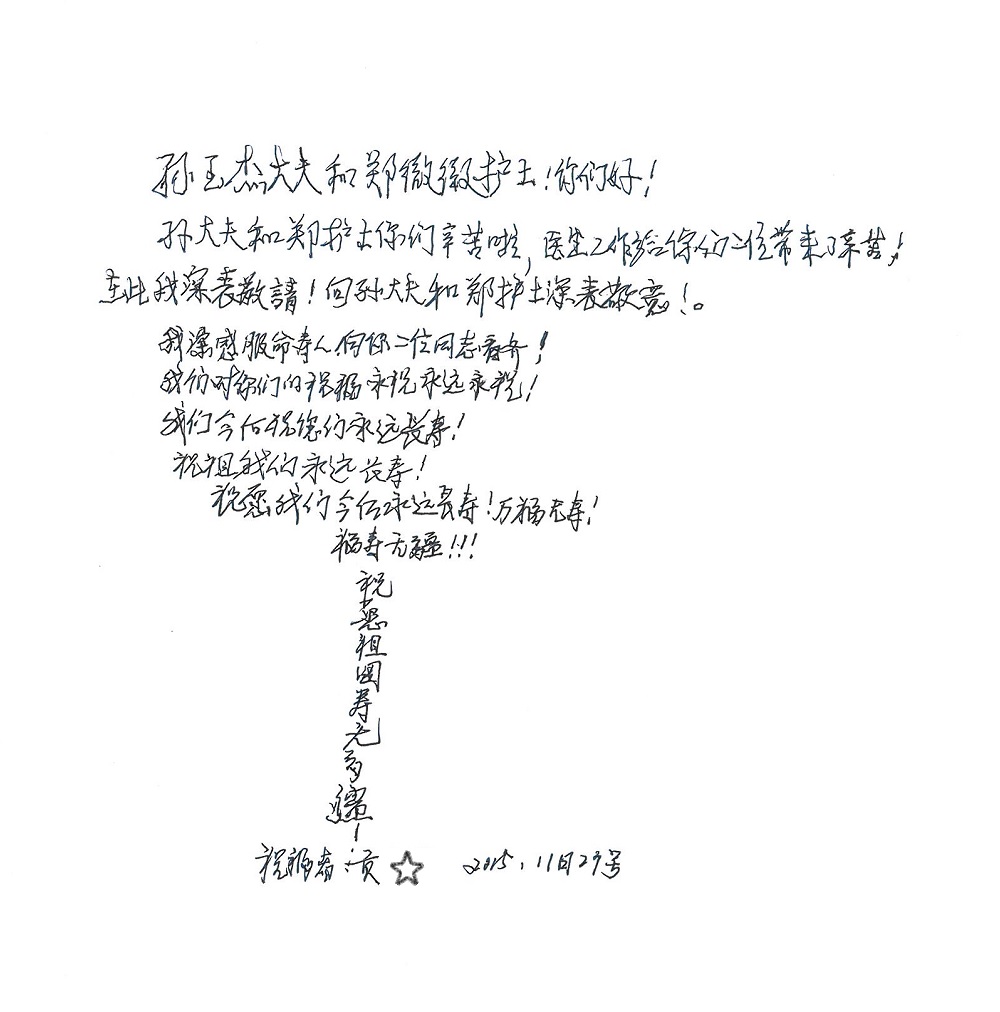 孙玉杰大夫和郑微微护士!你们好!
孙大夫和郑护士你们辛苦啦,医生工作给你们二位带来了辛苦!
至此我深表敬請!向孙大夫和郑护士深表敬意!。
我深感服命寿人向你二位同志
我们对你们的祝福永祝永远永祝!
我们今后祝您们永远長寿!
祝祖我们永远长寿!
祝愿我们今后永远長寿!万福无寿!
福寿无疆!!!
祝
愿
祖
国
寿
无
疆
!
祝福者:贡☆ 2015,11月29号